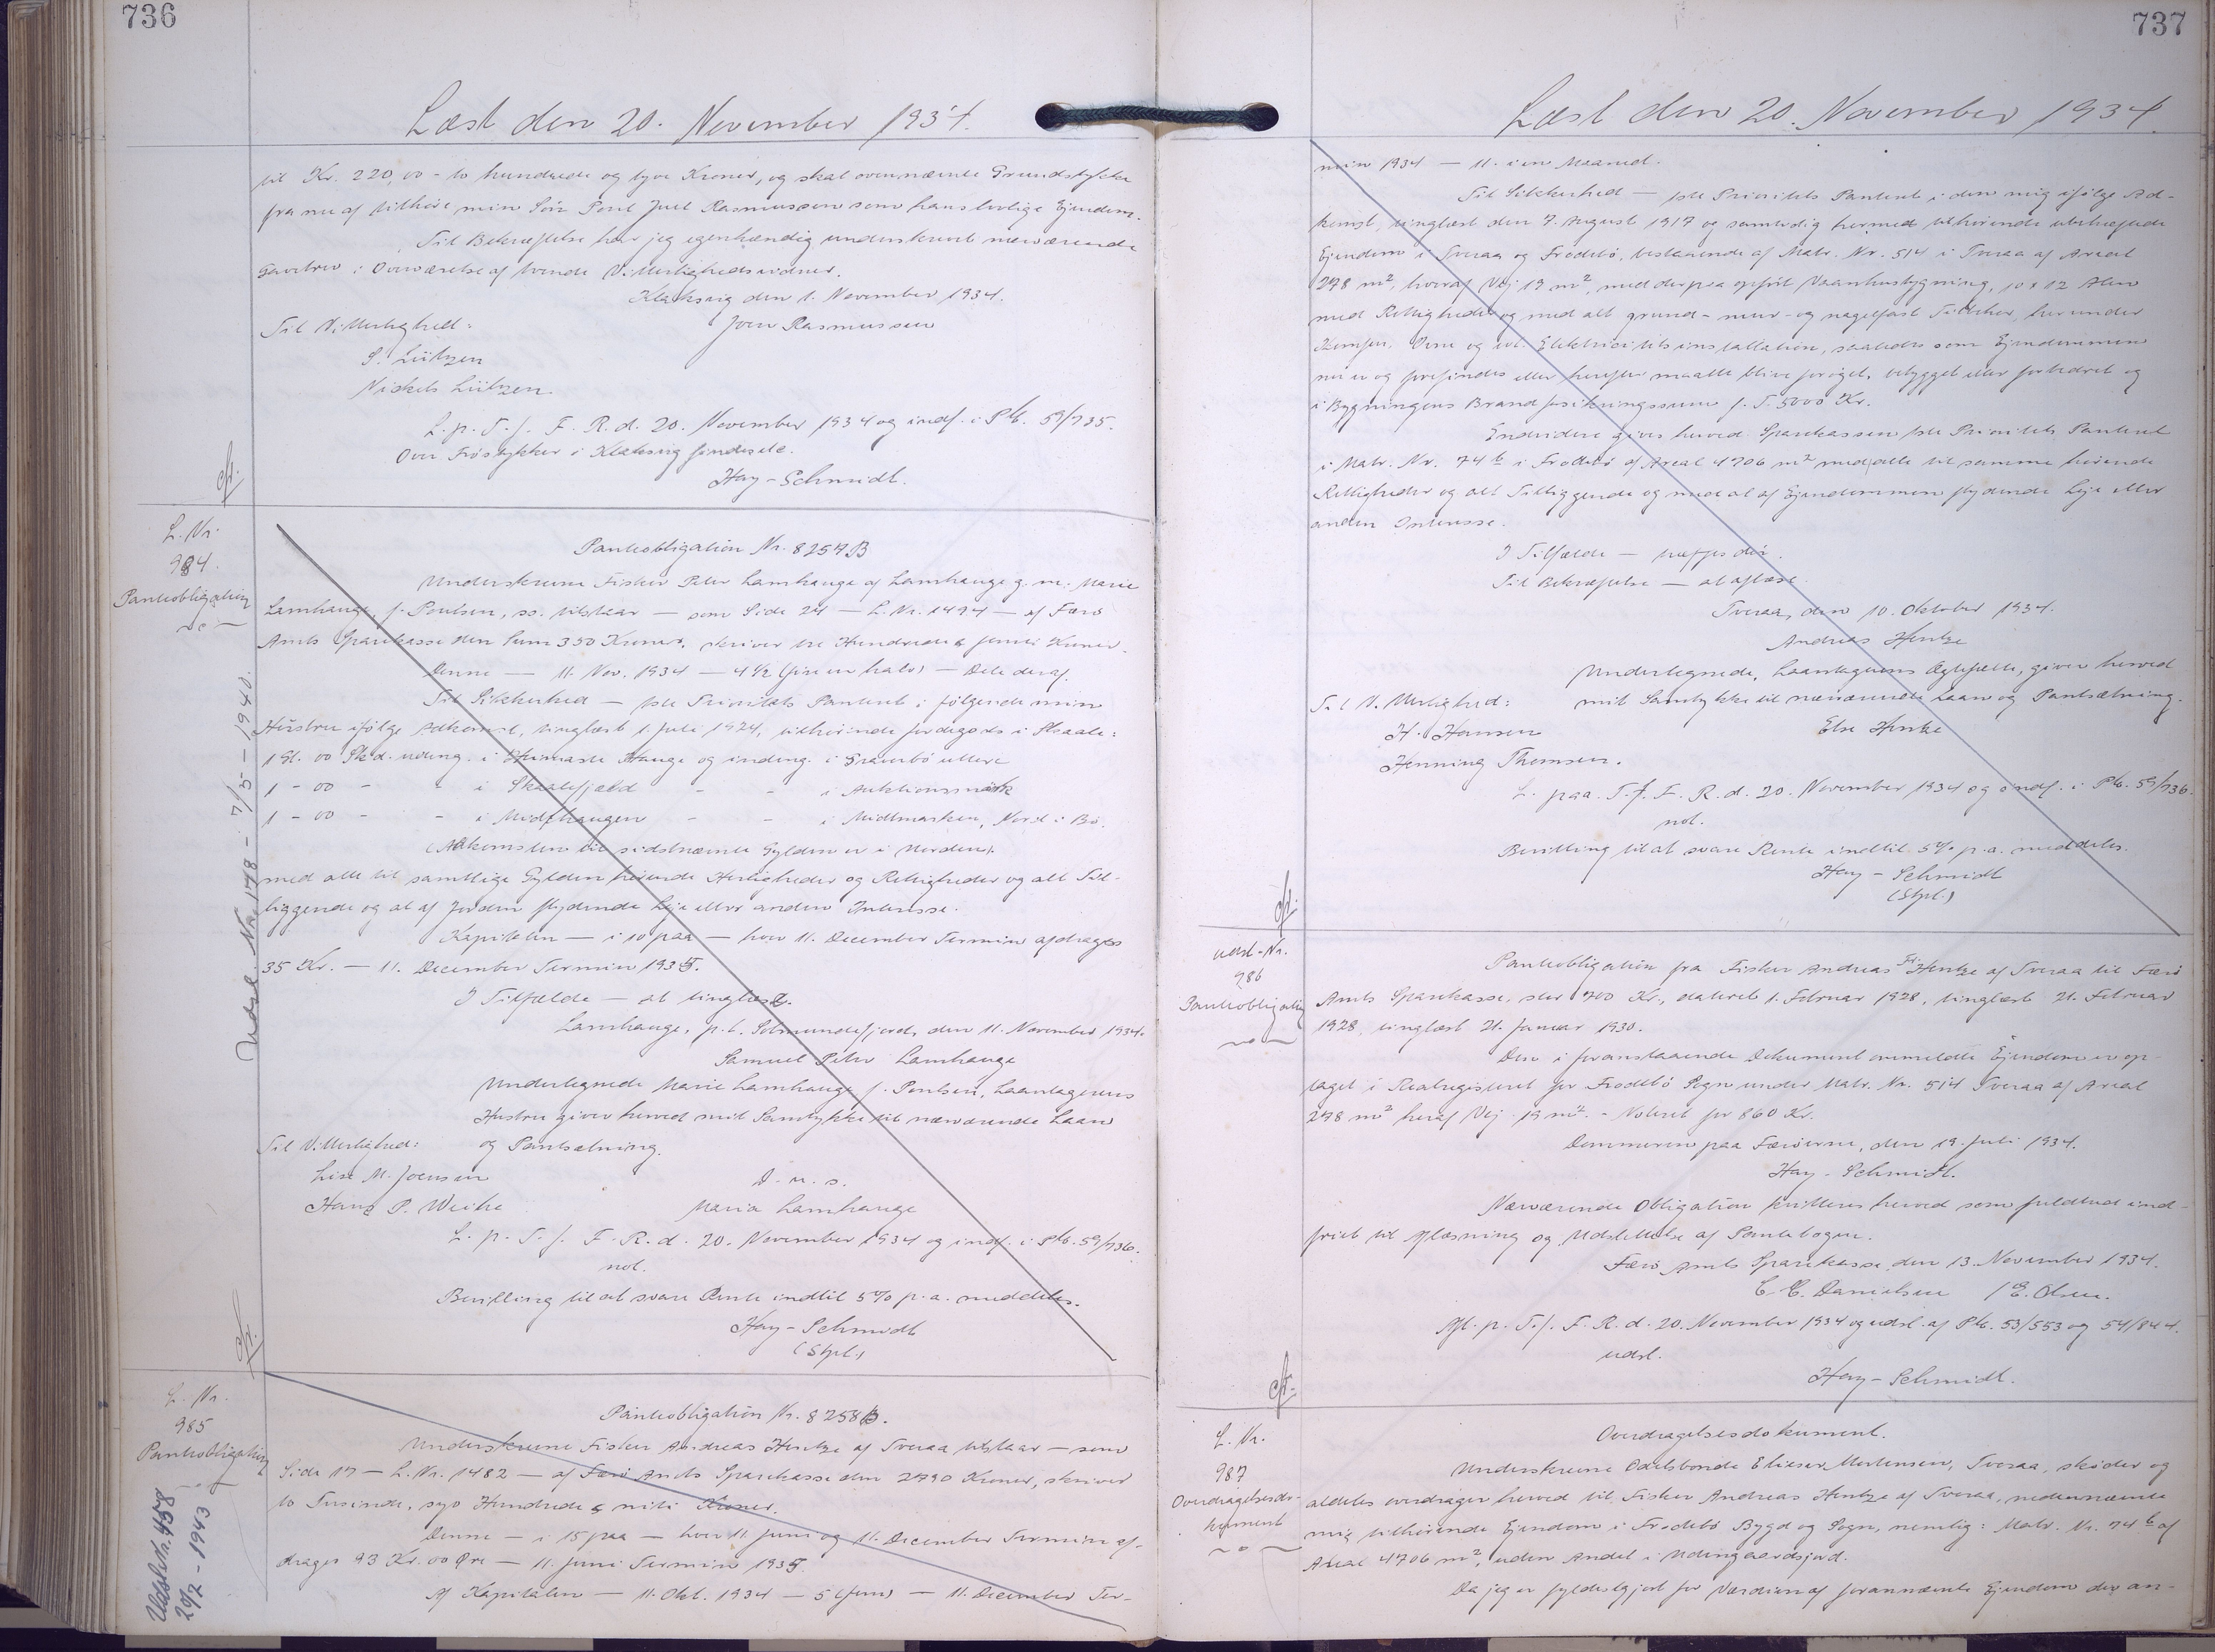 736
Læst den 20. November 1934.
til Kr. 220,00 - to hundrede og tyve Kroner, og skal ovennævnte Grundstykke
fra nu af tilhøre min Søn Poul Juel Rasmussen som hans lovlige Ejendom.
Til Bekræftelse har jeg egenhændig underskrevet nærværende
Gavebrev i Overværelse af tvende Vitterlighedsvidner.
Klaksvig den 1. November 1934.
Til Vitterlighed:
Joen Rasmussen
S. Lützen
Nickels Lützen
L. p. T. f. F. R. d. 20. November 1934 og indf. i Pb. 59/735.
Over Træstykker i Klaksvig findes ete.
Hay-Schmidt.
L. Nr.
984.
Pantobligation
Pantobligation Nr. 8257B
Underskrevne Fisker Peter Lamhauge af Lamhauge g. m. Marie
Lamhauge f. Poulsen, ss. tilstaar — som Side 24 — L. Nr. 1494 — af Færø
Amts Sparekasse den Sum 350 Kroner, skriver tre Hundrede & femti Kroner.
Denne — 11. Nov. 1934 — 4½ (fire en halv) — Dele deraf.
Til Sikkerhed — 1ste Prioritets Panteret i følgende min
Hustru ifølge Adkomst, tinglæst 1. Juli 1924, tilhørende Jordegods i Skaale:
1 Gl. 00 Skd. uding. i Heimaste Hauge og inding. i Gravebø uttere
1 - 00 - - i Skaalefjæld - - i Auktionsmørk
1 - 00 - - i Midfhaugen - - i Midtmarken, Nord i Bø.
(Adkomsten til sidstnævnte Gylden er i Norden).
med alle til samtlige Gylden hørende Herligheder og Rettigheder og alt Til-
liggende og al af Jorden flydende Leje eller anden Interesse.
Kapitalen — i 10 paa — hver 11. December Termin afdrages
35 Kr. — 11. December Termin 1935.
I Tilfælde — at tinglæse.
Lamhauge, p. t. Solmundefjord, den 11. November 1934.
Samuel Peter Lamhauge
Undertegnede Marie Lamhauge f. Poulsen, Laantagerens
Hustru giver herved mit Samtykke til nærværende Laan
Til Vitterlighed: og Pantsætning.
Lise M. Joensen D. u. s.
Hans P. Weihe Maria Lamhauge
L. p. T. f. F. R. d. 20. November 1934 og indf. i Pb. 59/736.
not.
Bevilling til at svare Rente indtil 5% p. a. meddeles.
Hay-Schmidt
(Stpl.)
Udsl. Nr. 178 - 7/5 - 1940.
L. Nr.
985
Pantobligation
Udsl. Nr. 458
20/2 - 1943
Pantobligation Nr. 8258B.
Underskrevne Fisker Andreas Hentze af Tveraa tilstaar — som
Side 17 — L. Nr. 1482 — af Færø Amts Sparekasse den 2790 Kroner, skriver
to Tusinde, syv Hundrede & niti Kroner.
Denne — i 15 paa — hver 11. Juni og 11. December Termin af-
drages 93 Kr. 00 Øre — 11. Juni Termin 1935.
Af Kapitalen — 11. Okt. 1934 — 5 (fem) — 11. December Ter-
737
Læst den 20. November 1934.
min 1934 — 11. i en Maaned.
Til Sikkerhed — 1ste Prioritets Panteret i den mig ifølge Ad-
komst, tinglæst den 7. August 1917 og samtidig hermed tilhørende ubehæftede
Ejendom i Tveraa og Frodebø, bestaaende af Matr. Nr. 514 i Tveraa af Areal
278 m², hvoraf Vej 19 m², med derpaa opført Vaanhusbygning, 10 x 12 Alen
med Rettigheder og med alt grund- mur- og nagelfast Tilbehør, herunder
Komfur, Ovne og evt. Elektricitetsinstallation, saaledes som Ejendommen
nu er og forefindes eller herefter maatte blive forøget, bebygget eller forbedret og
i Bygningens Brandforsikringssum f. T. 5000 Kr.
Endvidere gives herved Sparekassen 1ste Prioritets Panteret
i Matr. Nr. 74 b i Frodebø af Areal 4706 m² med alle til samme hørende
Rettigheder og alt Tilliggende og med al af Ejendommen flydende Leje eller
anden Interesse.
I Tilfælde — træffes dér.
Til Bekræftelse — at aflæse.
Tveraa, den 10. Oktober 1934.
Andreas Hentze
Undertegnede, Laantagerens Ægtefælle, giver herved
Til Vitterlighed: mit Samtykke til nærværende Laan og Pantsætning.
H. Hansen Else Hentze
Henning Thomsen.
L. paa T. f. F. R. d. 20. November 1934 og indf. i Pb. 59/736.
not.
Bevilling til at svare Rente indtil 5% p. a. meddeles.
Hay-Schmidt
(Stpl.)
Udsl.-Nr.
986
Pantobligation
Pantobligation fra Fisker Andreas Fr. Hentze af Tveraa til Færø
Amts Sparekasse, stor 700 Kr., dateret 1. Februar 1928, tinglæst 21. Februar
1928, tinglæst 21. Januar 1930.
Den i foranstaaende Dokument ommeldte Ejendom er op-
taget i Realregisteret for Frodebø Sogn under Matr. Nr. 514 Tveraa af Areal
278 m² heraf Vej 19 m². - Noteret for 860 Kr.
Dommeren paa Færøerne, den 19. Juli 1934.
Hay-Schmidt.
Nærværende Obligation kvitteres herved som fuldtud ind-
friet til Aflæsning og Udslettelse af Pantebogen.
Færø Amts Sparekasse, den 13. November 1934.
C. C. Danielsen / E. Olsen.
Afl. p. T. f. F. R. d. 20. November 1934 og udsl. af Pb. 53/553 og 54/844.
udsl.
Hay-Schmidt.
L. Nr.
987
Overdragelsesdo-
kument
Overdragelsesdokument.
Underskrevne Odelsbonde Elieser Mortensen, Tveraa, skøder og
aldeles overdrager herved til Fisker Andreas Hentze af Tveraa, nedennævnte
mig tilhørende Ejendom i Frodebø Bygd og Sogn, nemlig: Matr. Nr. 74 b af
Areal 4706 m², uden Andel i Udingaardsjord.
Da jeg er fyldestgjort for Værdien af forannævnte Ejendom der an-